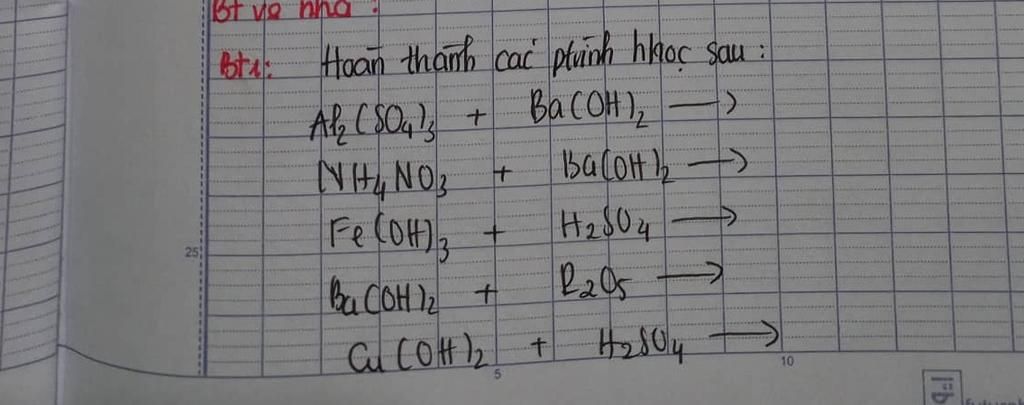 Bt về nhà :
Bt1: Hoàn thành các ptrình hhọc sau :
Al₂(SO₄)₃ + Ba(OH)₂ →
NH₄NO₃ + Ba(OH)₂ →
Fe(OH)₃ + H₂SO₄ →
25
Ba(OH)₂ + P₂O₅ →
Cu(OH)₂ + H₂SO₄ →
5 10